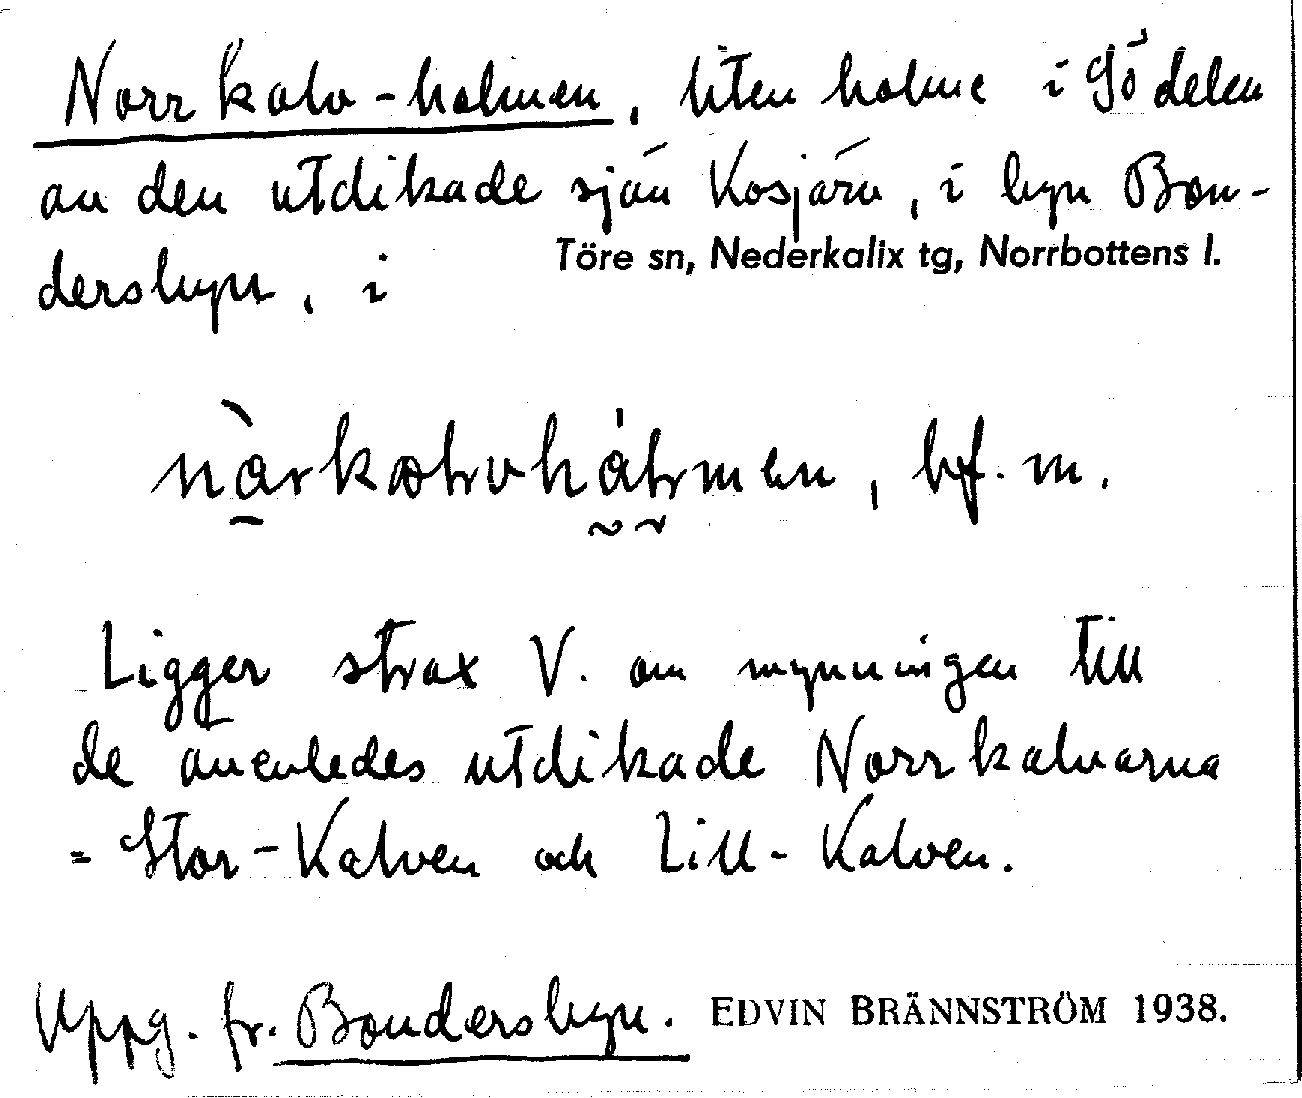 Norrkalv-holmen, liten holme i Södelen
av den utdikade sjön Kosjärv, i byn Bon-
dersbyn, i Töre sn, Nederkalix tg, Norrbottens l.
bf. m.
Ligger strax V. om mynningen till
de även­ledes utdikade Norrkalvarna
= Stor-Kalven och Lill-Kalven.
Uppg. fr. Bondersbyn. EDVIN BRÄNNSTRÖM 1938.